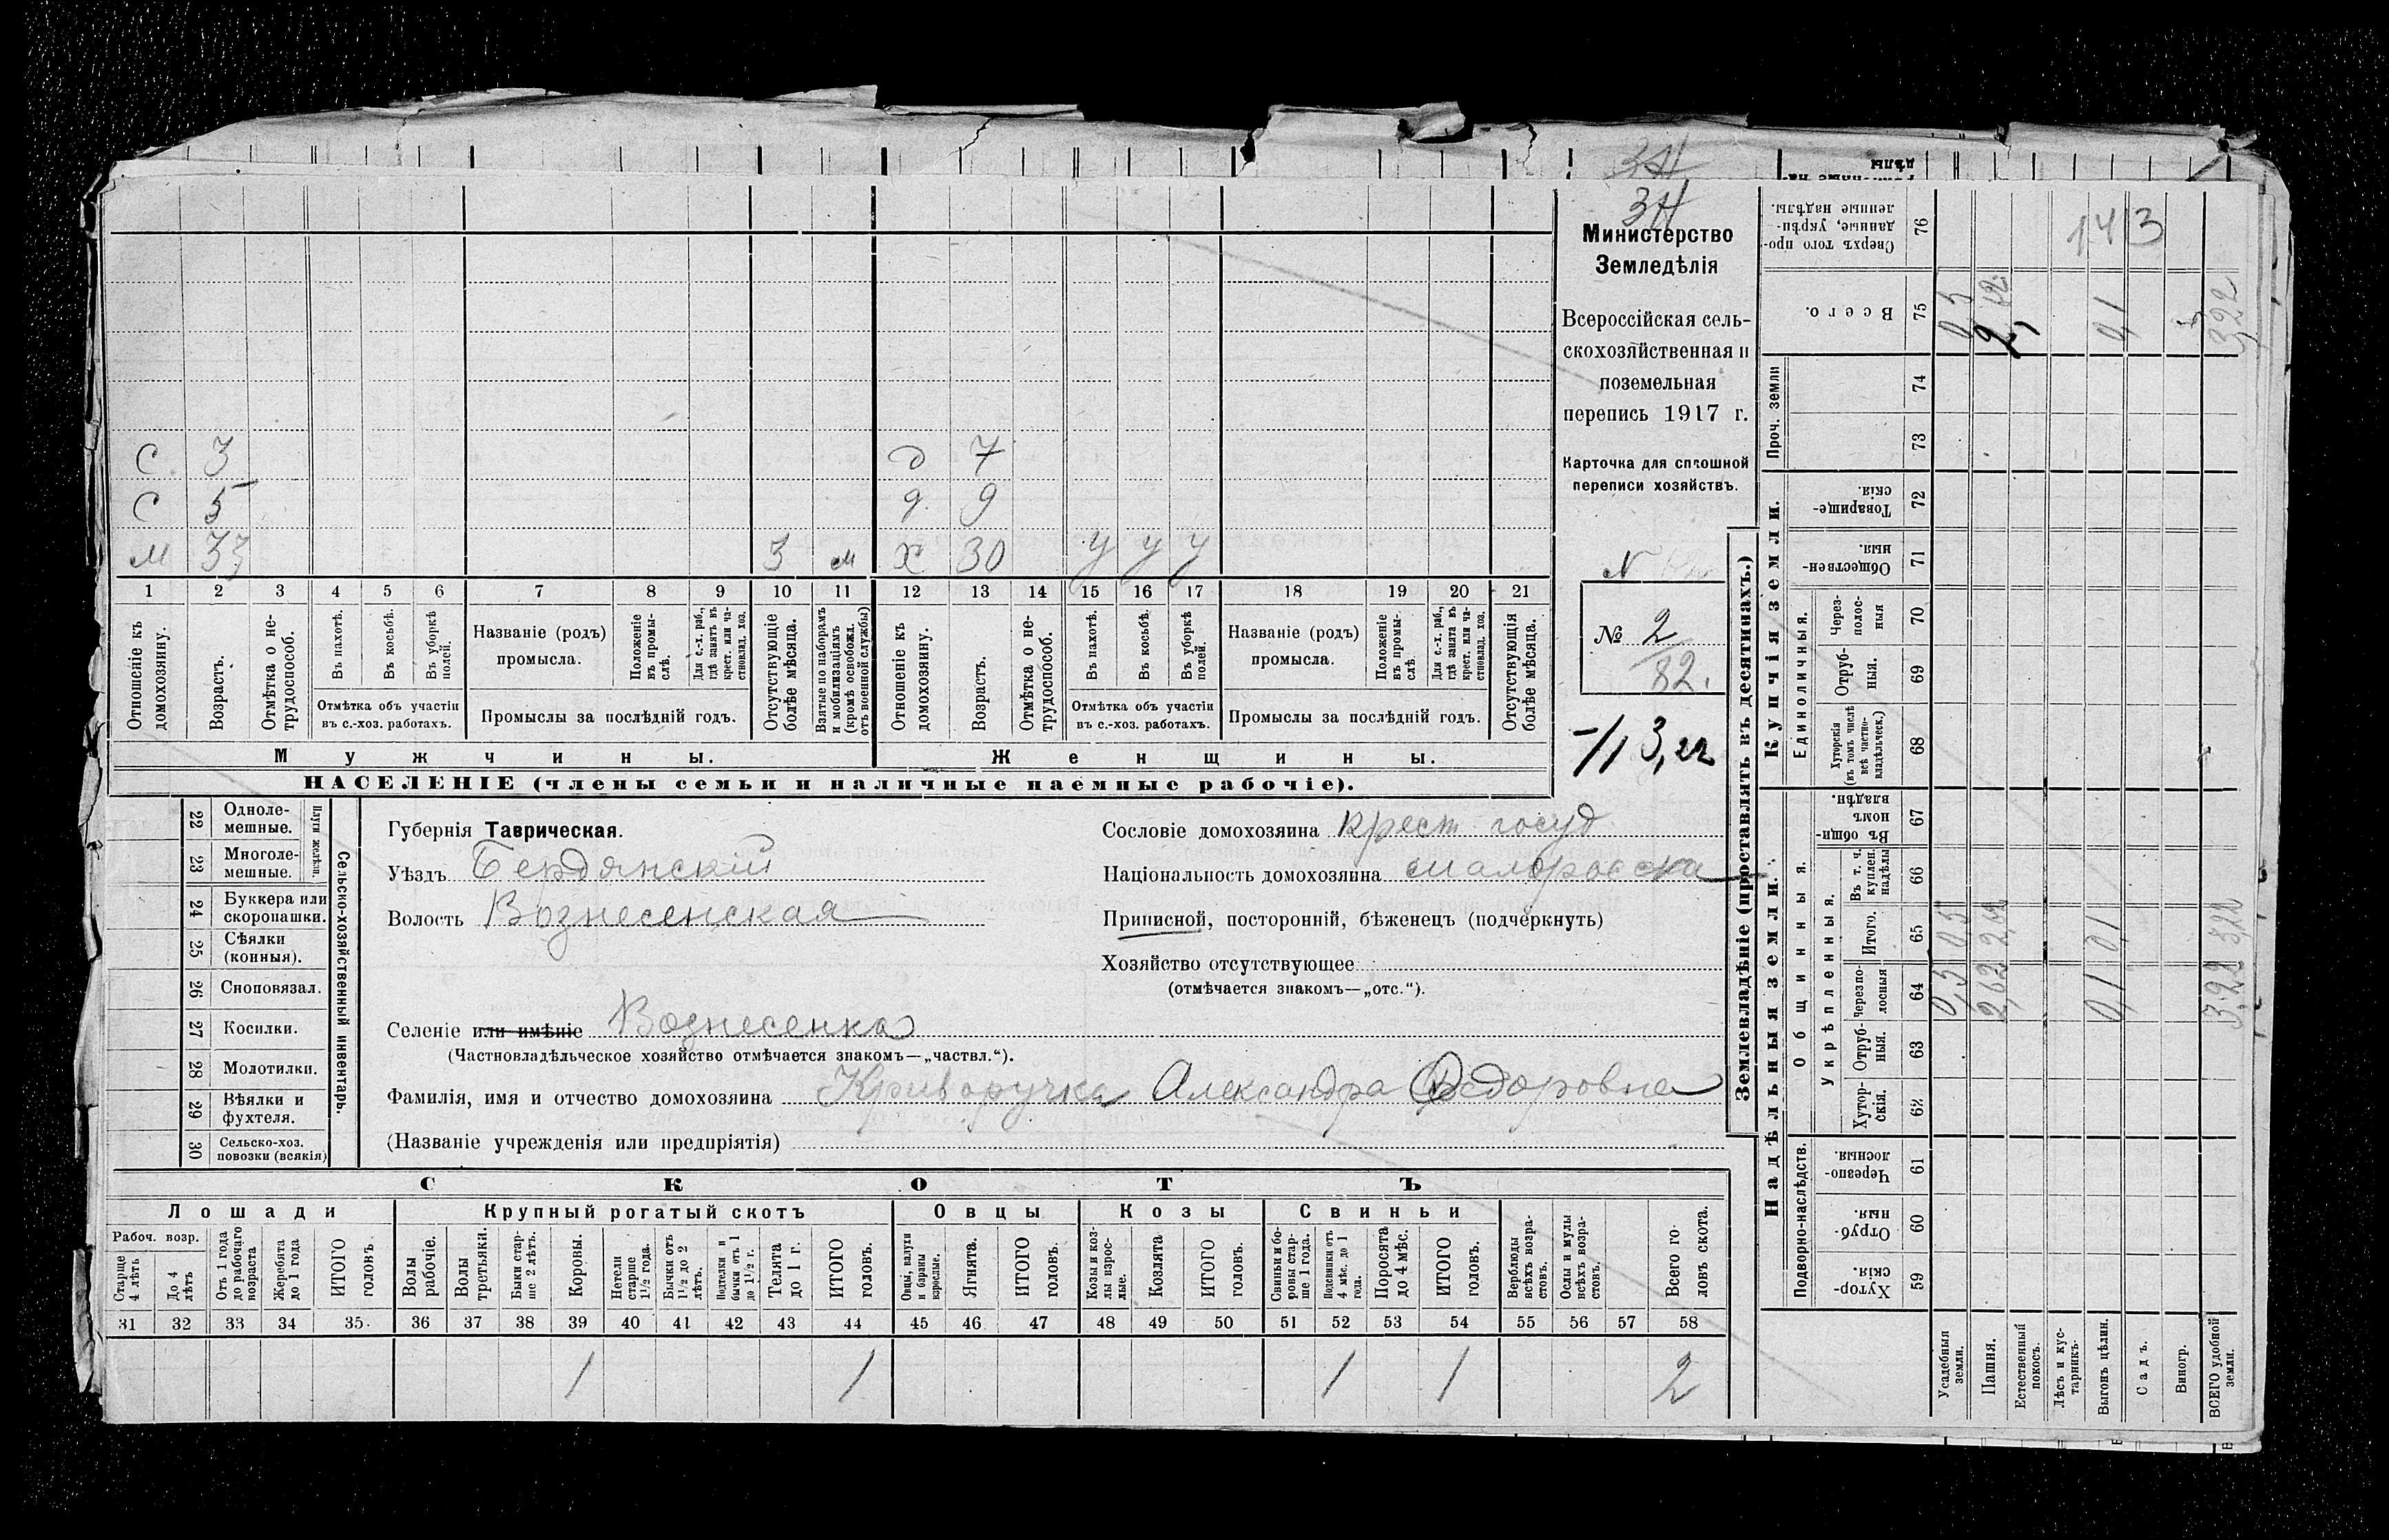 3Н
3Н
Министерство
Земледѣлія
Всероссійская сель-
скохозяйственная и
поземельная
перепись 1917 г.
Карточка для сплошной
переписи хозяйствъ.
N
№ 2
82.
С. 3 д 7
С 5 д. 9
м 33 3 м х 30 у у у
1 2 3 4 5 6 7 8 9 10 11 12 13 14 15 16 17 18 19 20 21
Отношеніе къ домохозяину.
Возрастъ.
Отмѣтка о не-трудоспособ.
Въ пахотѣ.
Въ косьбѣ.
Въ уборкѣ полей.
Отмѣтка объ участіи
въ с.-хоз. работахъ.
Названіе (родъ)
промысла.
Положеніе въ промы-слѣ.
Для с.-х. раб., гдѣ занятъ въ крест. или ча-стновлад. хоз.
Промыслы за послѣдній годъ.
Отсутствующіе болѣе мѣсяца.
Взятые по наборамъ и мобилизаціямъ (кромѣ освобожд. отъ военной службы)
Отношеніе къ домохозяину.
Возрастъ.
Отмѣтка о не-трудоспособ.
Въ пахотѣ.
Въ косьбѣ.
Въ уборкѣ полей.
Отмѣтка объ участіи
въ с.-хоз. работахъ.
Названіе (родъ)
промысла.
Положеніе въ промы-слѣ.
Для с.-х. раб., гдѣ занята въ крест. или ча-стновлад. хоз.
Промыслы за послѣдній годъ.
Отсутствующія болѣе мѣсяца.
Мужчины. Женщины.
НАСЕЛЕНІЕ (члены семьи и наличные наемные рабочіе).
22 Одноле-мешные.
23 Многоле-мешные.
Плуги желѣзн.
24 Буккера или скоропашки.
25 Сѣялки (конныя).
26 Сноповязал.
27 Косилки.
28 Молотилки.
29 Вѣялки и фухтеля.
30 Сельско-хоз. повозки (всякія)
Сельско-хозяйственный инвентарь.
Губернія Таврическая.
Уѣздъ Бердянскій
Волость Вознесенская
Селеніе или имѣніе Вознесенка
(Частновладѣльческое хозяйство отмѣчается знакомъ—„частвл.“).
Фамилія, имя и отчество домохозяина Криворучка Александра Федоровна
(Названіе учрежденія или предпріятія)
Сословіе домохозяина крест. госуд
Національность домохозяина малоросска
Приписной, посторонній, бѣженецъ (подчеркнуть)
Хозяйство отсутствующее
(отмѣчается знакомъ—„отс.“).
СКОТЪ
Лошади Крупный рогатый скотъ Овцы Козы Свиньи
Рабоч. возр.
Старше 4 лѣтъ
До 4 лѣтъ
Отъ 1 года до рабочаго возраста
Жеребята до 1 года
ИТОГО головъ.
Волы рабочіе.
Волы третьяки.
Быки стар-ше 2 лѣтъ.
Коровы.
Нетели старше 1½ года.
Бычки отъ 1½ до 2 лѣтъ.
Подтелки и бычки отъ 1 до 1½ г.
Телята до 1 г.
ИТОГО головъ.
Овцы, валухи и бараны взрослые.
Ягнята.
ИТОГО головъ.
Козы и коз-лы взрос-лые.
Козлята
ИТОГО головъ.
Свиньи и бо-ровы стар-ше 1 года.
Подсвинки отъ 4 мѣс. до 1 года.
Поросята до 4 мѣс.
ИТОГО головъ.
Верблюды всѣхъ возра-стовъ.
Ослы и мулы всѣхъ возра-стовъ.
Всего го-ловъ скота.
31 32 33 34 35 36 37 38 39 40 41 42 43 44 45 46 47 48 49 50 51 52 53 54 55 56 57 58
1 1 1 1 2
Землевладѣніе (проставлять въ десятинахъ.)
Надѣльныя земли.
Купчія земли.
Проч. земли
Подворно-наслѣдств.
Общинныя.
Укрѣпленныя.
Единоличныя.
Сверхъ того про-данные, укрѣп-ленные надѣлы. 76 143
Всего. 75 0,5 0,1 3,22
74
73
Товарище-скія. 72
Обществен-ныя. 71
Через-полос-ныя 70
Отруб-ныя. 69
Хуторскія (въ томъ числѣ всѣ частно-владѣльческ.) 68
Въ общин-номъ владѣн. 67
Въ т. ч. куплен. надѣлы 66
Итого. 65 0,5 2,62 0,1 3,22
Черезпо-лосныя 64 0,5 2,62 0,1 3,22
Отруб-ныя. 63
Хутор-скія. 62
Черезпо-лосныя. 61
Отруб-ныя. 60
Хутор-скія. 59
Усадебныя земли.
Пашня.
Естественный покосъ.
Лѣсъ и кус-тарникъ.
Выгонъ цѣлин.
Садъ.
Виногр.
ВСЕГО удобной земли.